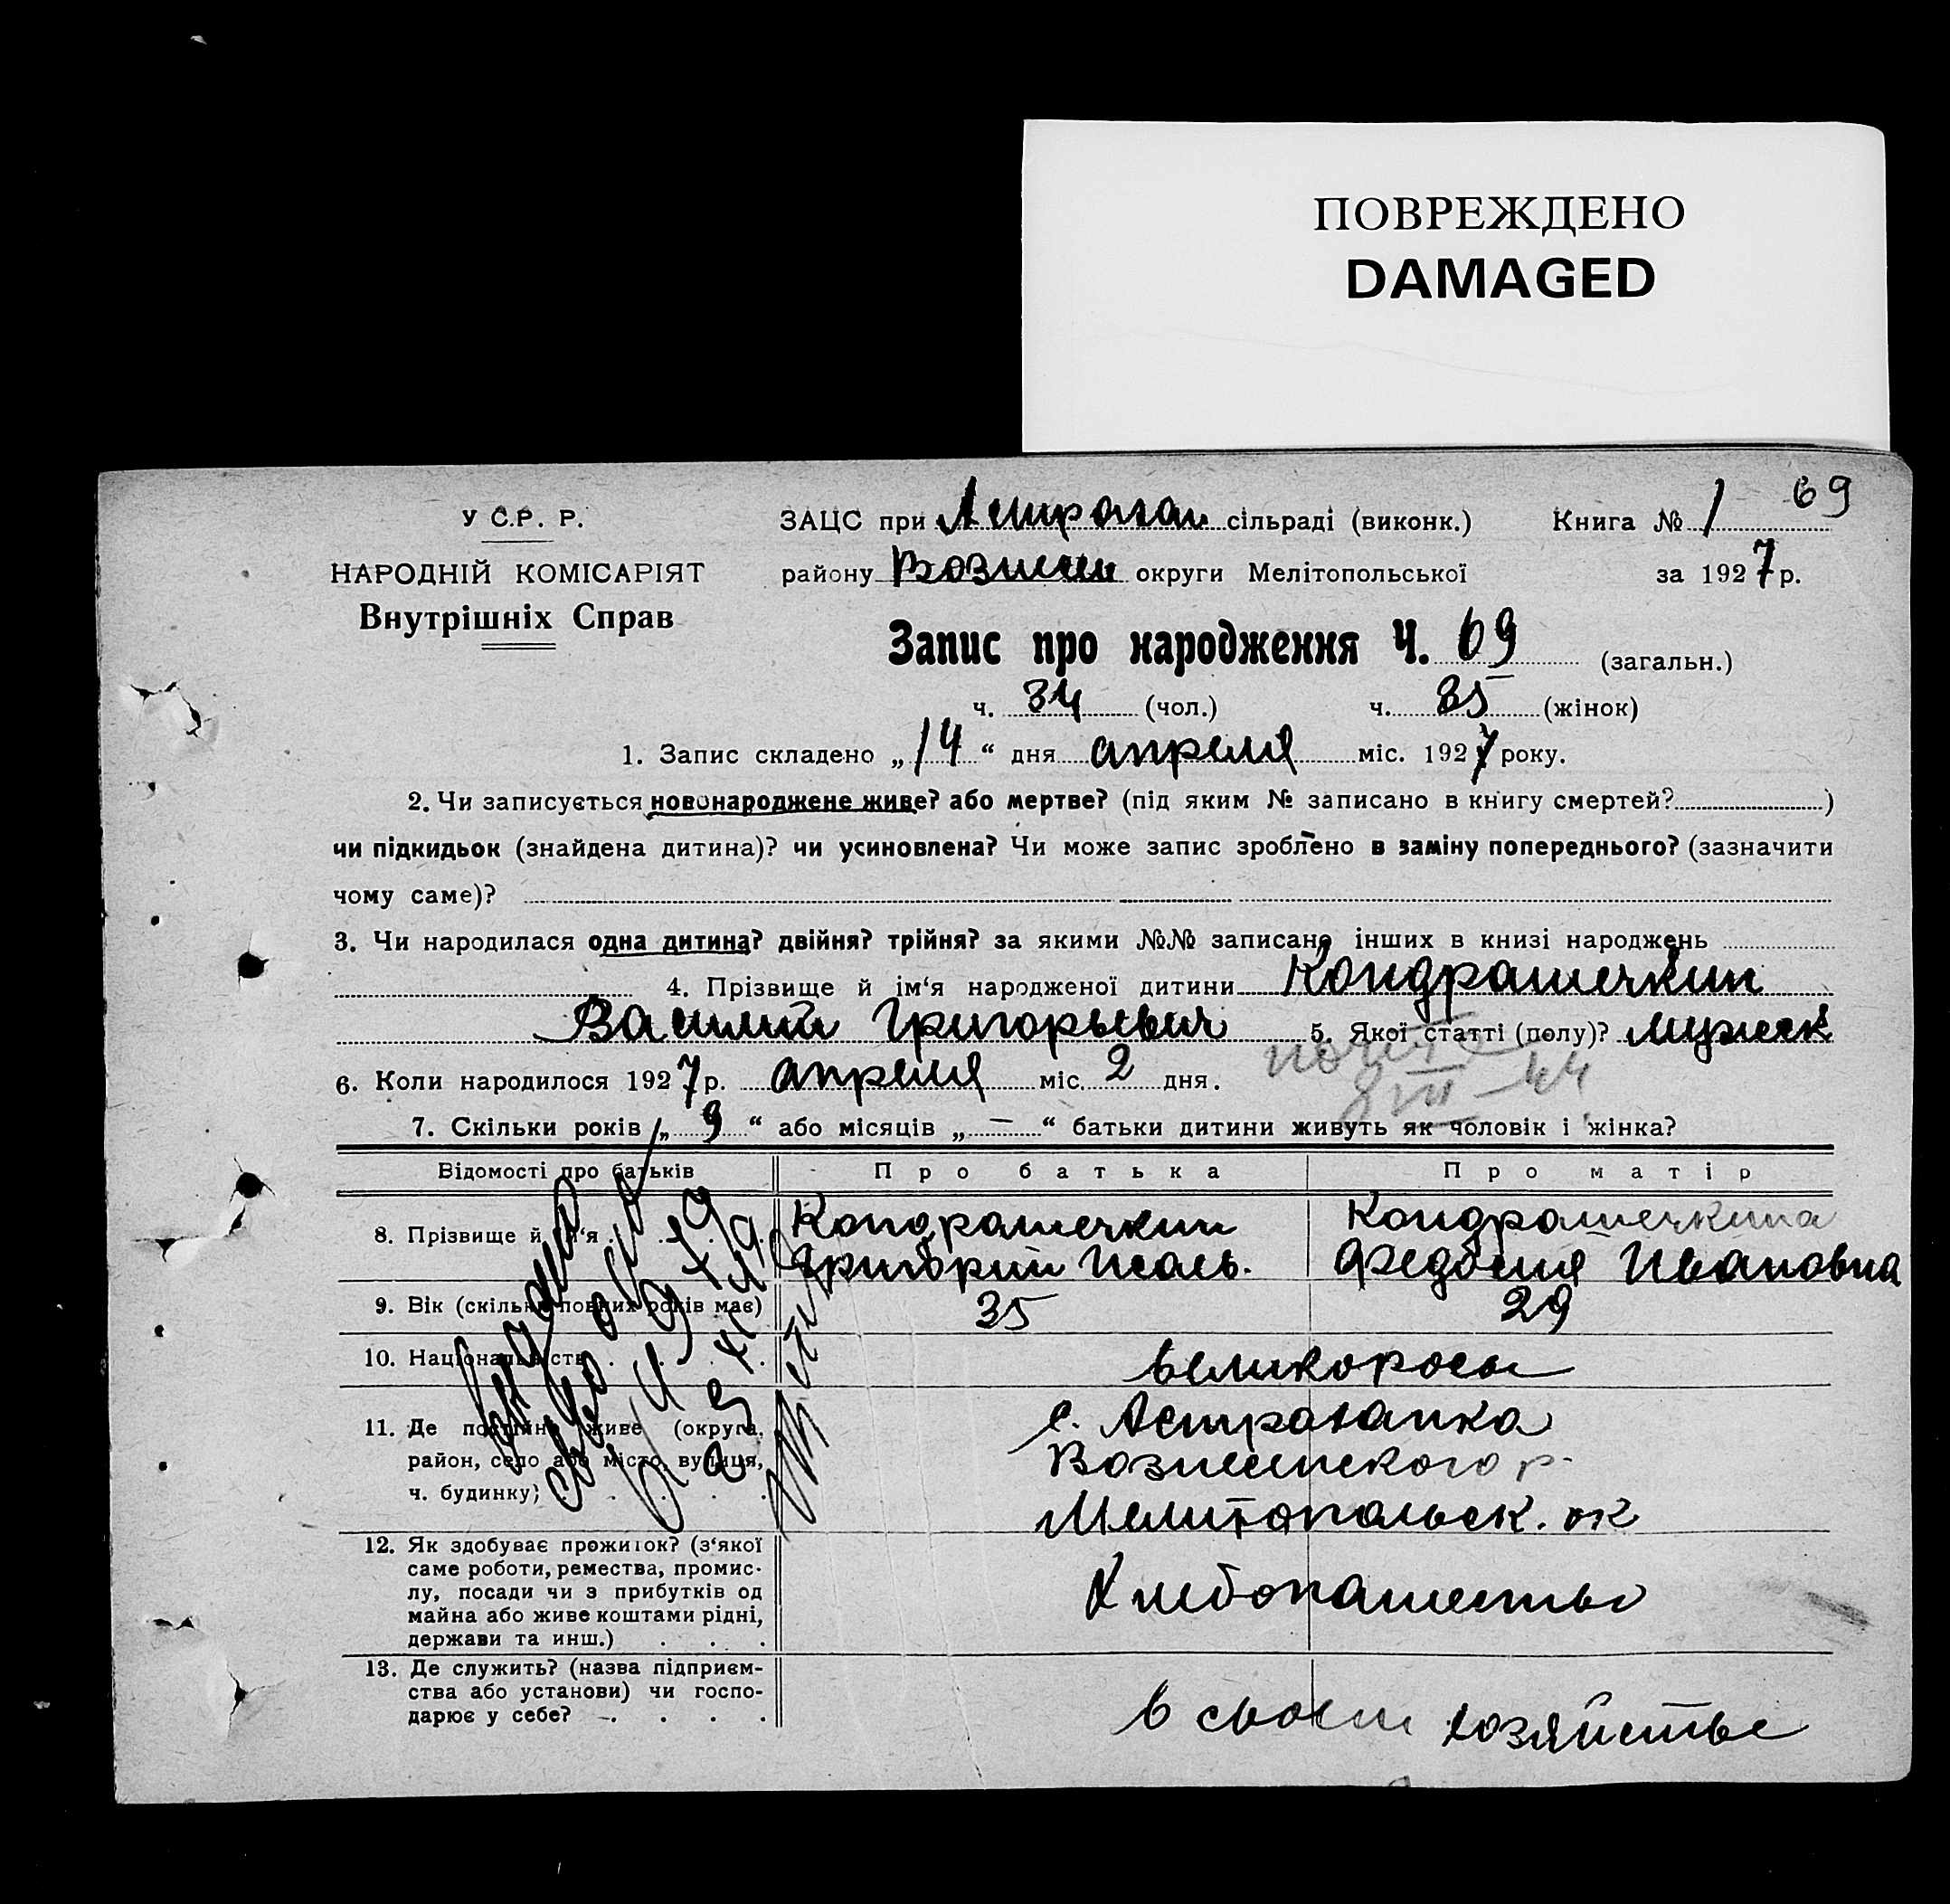 ПОВРЕЖДЕНО
DAMAGED
У С.Р. Р.
НАРОДНІЙ КОМІСАРІЯТ
Внутрішніх Справ
69
ЗАЦС при Астрахан сільраді (виконк.) Книга № 1
району Вознесен округи Мелітопольської за 1927 р.
Запис про народження Ч. 69 (загальн.)
ч. 34 (чол.) ч. 35 (жінок)
1. Запис складено „14“ дня апреля міс. 1927 року.
2. Чи записується новонароджене живе? або мертве? (під яким № записано в книгу смертей? )
чи підкидьок (знайдена дитина)? чи усиновлена? Чи може запис зроблено в заміну попереднього? (зазначити
чому саме)?
3. Чи народилася одна дитина? двійня? трійня? за якими №№ записано інших в книзі народжень
4. Прізвище й ім‘я народженої дитини Кондрашечкин
Василий Григорьевич 5. Якої статті (полу)? мужск
6. Коли народилося 1927 р. апреля міс. 2 дня.
8 VII-44
7. Скільки років „9“ або місяців „—“ батьки дитини живуть як чоловік і жінка?
Відомості про батьків Про батька Про матір
8. Прізвище й ім‘я Кондрашечкин Кондрашечкина
Григорий Исаев. Федосия Ивановна
9. Вік (скільки повних років має) 35 29
10. Національність великороссы
11. Де постійно живе (округа, с. Астраханка
район, село або місто, вулиця, Вознесенского р.
ч. будинку) Мелитопольск. ок
12. Як здобуває прожиток? (з‘якої
саме роботи, ремества, промис-
лу, посади чи з прибутків од Хлебопашество
майна або живе коштами рідні,
держави та инш.)
13. Де служить? (назва підприєм-
ства або установи) чи госпо- в своем хозяйстве
дарює у себе?